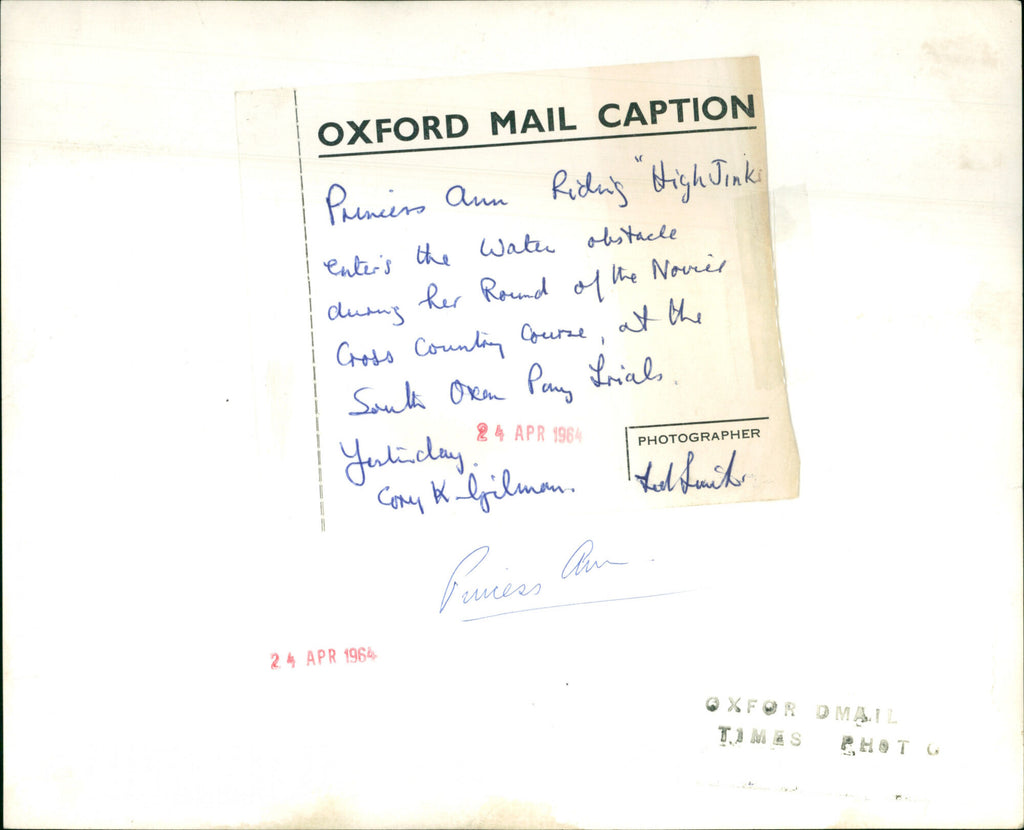 OXFORD MAIL CAPTION
Princess Ann Riding "High Jinks
enters the Water obstacle
during her Round of the Novice
Cross Country Course, at the
South Oxon Pony Trials.
24 APR 1964
Yesterday.
Cony K Gilman.
PHOTOGRAPHER
Princess Ann.
24 APR 1964
OXFOR DMAIL
TIMES PHOT O